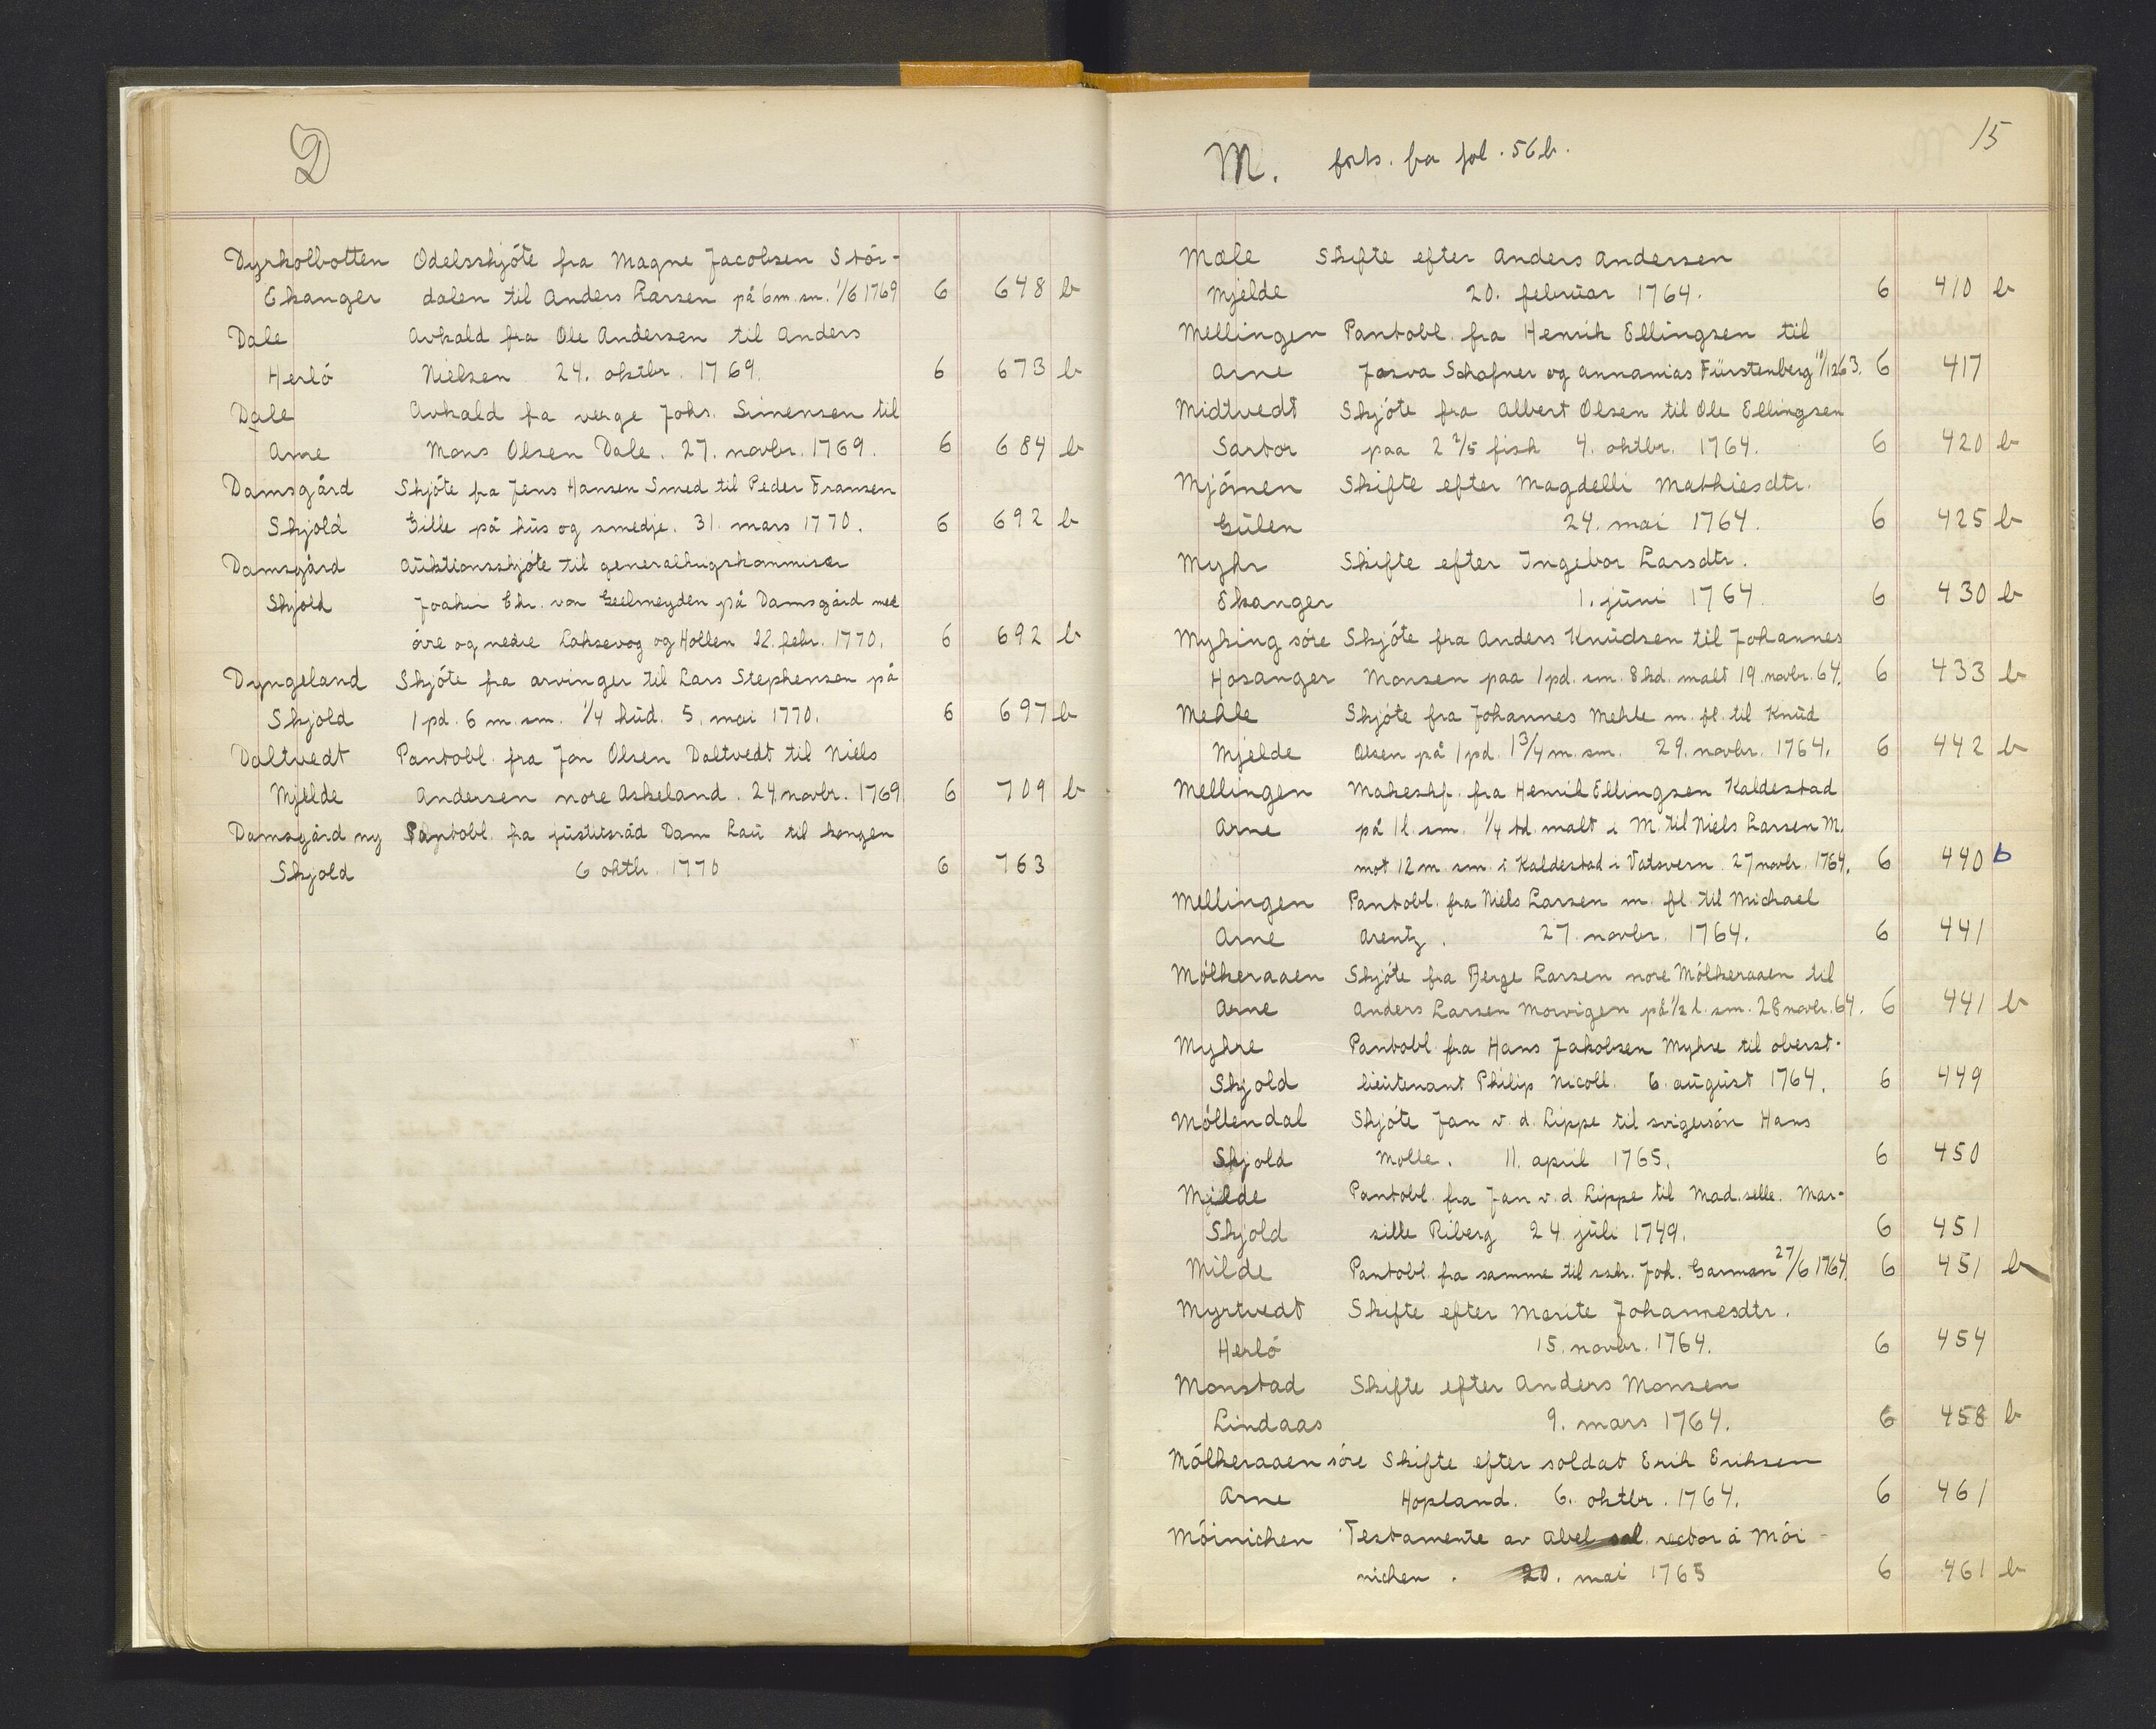 D
Dyrkolbotten Odelsskjóte fra Magne Jacobsen Stór-
Ekanger dalen til Anders Larsen på 6 m. sm. 1/6 1769 6 648 b
Dale Avkald fra Ole Andersen til Anders
Herló Nielsen 24. oktbr. 1769. 6 673 b
Dale Avkald fra verge Johs. Simensen til
Arne Mons Olsen Dale. 27. novbr. 1769. 6 684 b
Damsgård Skjóte fra Jens Hansen Smed til Peder Fransen
Skjold Gille på hús og smedje. 31. mars 1770. 6 692 b
Damsgård Auktionsskjóte til generalkrigskommisær
Skjold Joakim Chr. von Geelmeyden på Damsgård med
óvre og nedre Laksevog og Hollen 22. febr. 1770. 6 692 b
Dyngeland Skjóte fra arvinger til Lars Stephensen på
Skjold 1 pd. 6 m. sm. 1/4 hud. 5. mai 1770. 6 697 b
Daltvedt Pantobl. fra Jon Olsen Daltvedt til Niels
Mjelde Andersen nore Askeland. 24. novbr. 1769 6 709 b
Damsgård ny Pantobl. fra justitsråd Dam Lau til kongen
Skjold 6 oktbr. 1770 6 763
M. forts. fra fol. 56 b. 15
Mæle Skifte efter Anders Andersen
Mjelde 20. februar 1764. 6 410 b
Mellingen Pantobl. fra Henrik Ellingsen til
Arne Josva Schafner og Annanias Fürstenberg 6 417
Midtvedt Skjóte fra Albert Olsen til Ole Ellingsen
Sartor paa 2 2/5 fisk 4. oktbr. 1764. 6 420 b
Mjómen Skifte efter Magdelli Mathiesdtr.
Gulen 24. mai 1764. 6 425 b
Myhr Skifte efter Ingebor Larsdtr.
Ekanger 1. juni 1764. 6 430 b
Myking sóre Skjóte fra Anders Knudsen til Johannes
Hosanger Monsen paa 1 pd. sm. 8 kd. malt 19. novbr. 64. 6 433 b
Mehle Skjóte fra Johannes Mehle m. fl. til Knud
Mjelde Olsen på 1 pd. 1 3/4 m. sm. 29. novbr. 1764. 6 442 b
Mellingen Makeskf. fra Henrik Ellingsen Kaldestad
Arne på 1 l. sm. 1/4 td. malt i M. til Niels Larsen M.
mot 12 m. sm. i Kaldestad i Vatsvern. 27 novbr. 1764. 6 440 b
Mellingen Pantobl. fra Niels Larsen m. fl. til Michael
Arne Arentz. 27. novbr. 1764. 6 441
Mólkeraaen Skjóte fra Berge Larsen nore Mólkeraaen til
Arne Anders Larsen Morvigen på 1/2 l. sm. 28 novbr. 64. 6 441 b
Myhre Pantobl. fra Hans Jakobsen Myhre til oberst-
Skjold lieutenant Philip Nicoll. 6. august 1764. 6 449
Móllendal Skjóte Jan v. d. Lippe til svigersón Hans
Skjold Molle. 11. april 1765. 6 450
Milde Pantobl. fra Jan v. d. Lippe til Mad.selle. Mar-
Skjold sille Riberg 24. juli 1749. 6 451
Milde Pantobl. fra samme til Joh. Garman 27/6 1764. 6 451 b
Myrtvedt Skifte efter Marite Johannesdtr.
Herló 15. novbr. 1764. 6 454
Monstad Skifte efter Anders Monsen
Lindaas 9. mars 1764. 6 458 b
Mólkeraaen sóre Skifte efter soldat Erik Eriksen
Arne Hopland. 6. oktbr. 1764. 6 461
Móinichen Testamente av Abel sal. rector á Mói-
nichen. 20. mai 1765 6 461 b